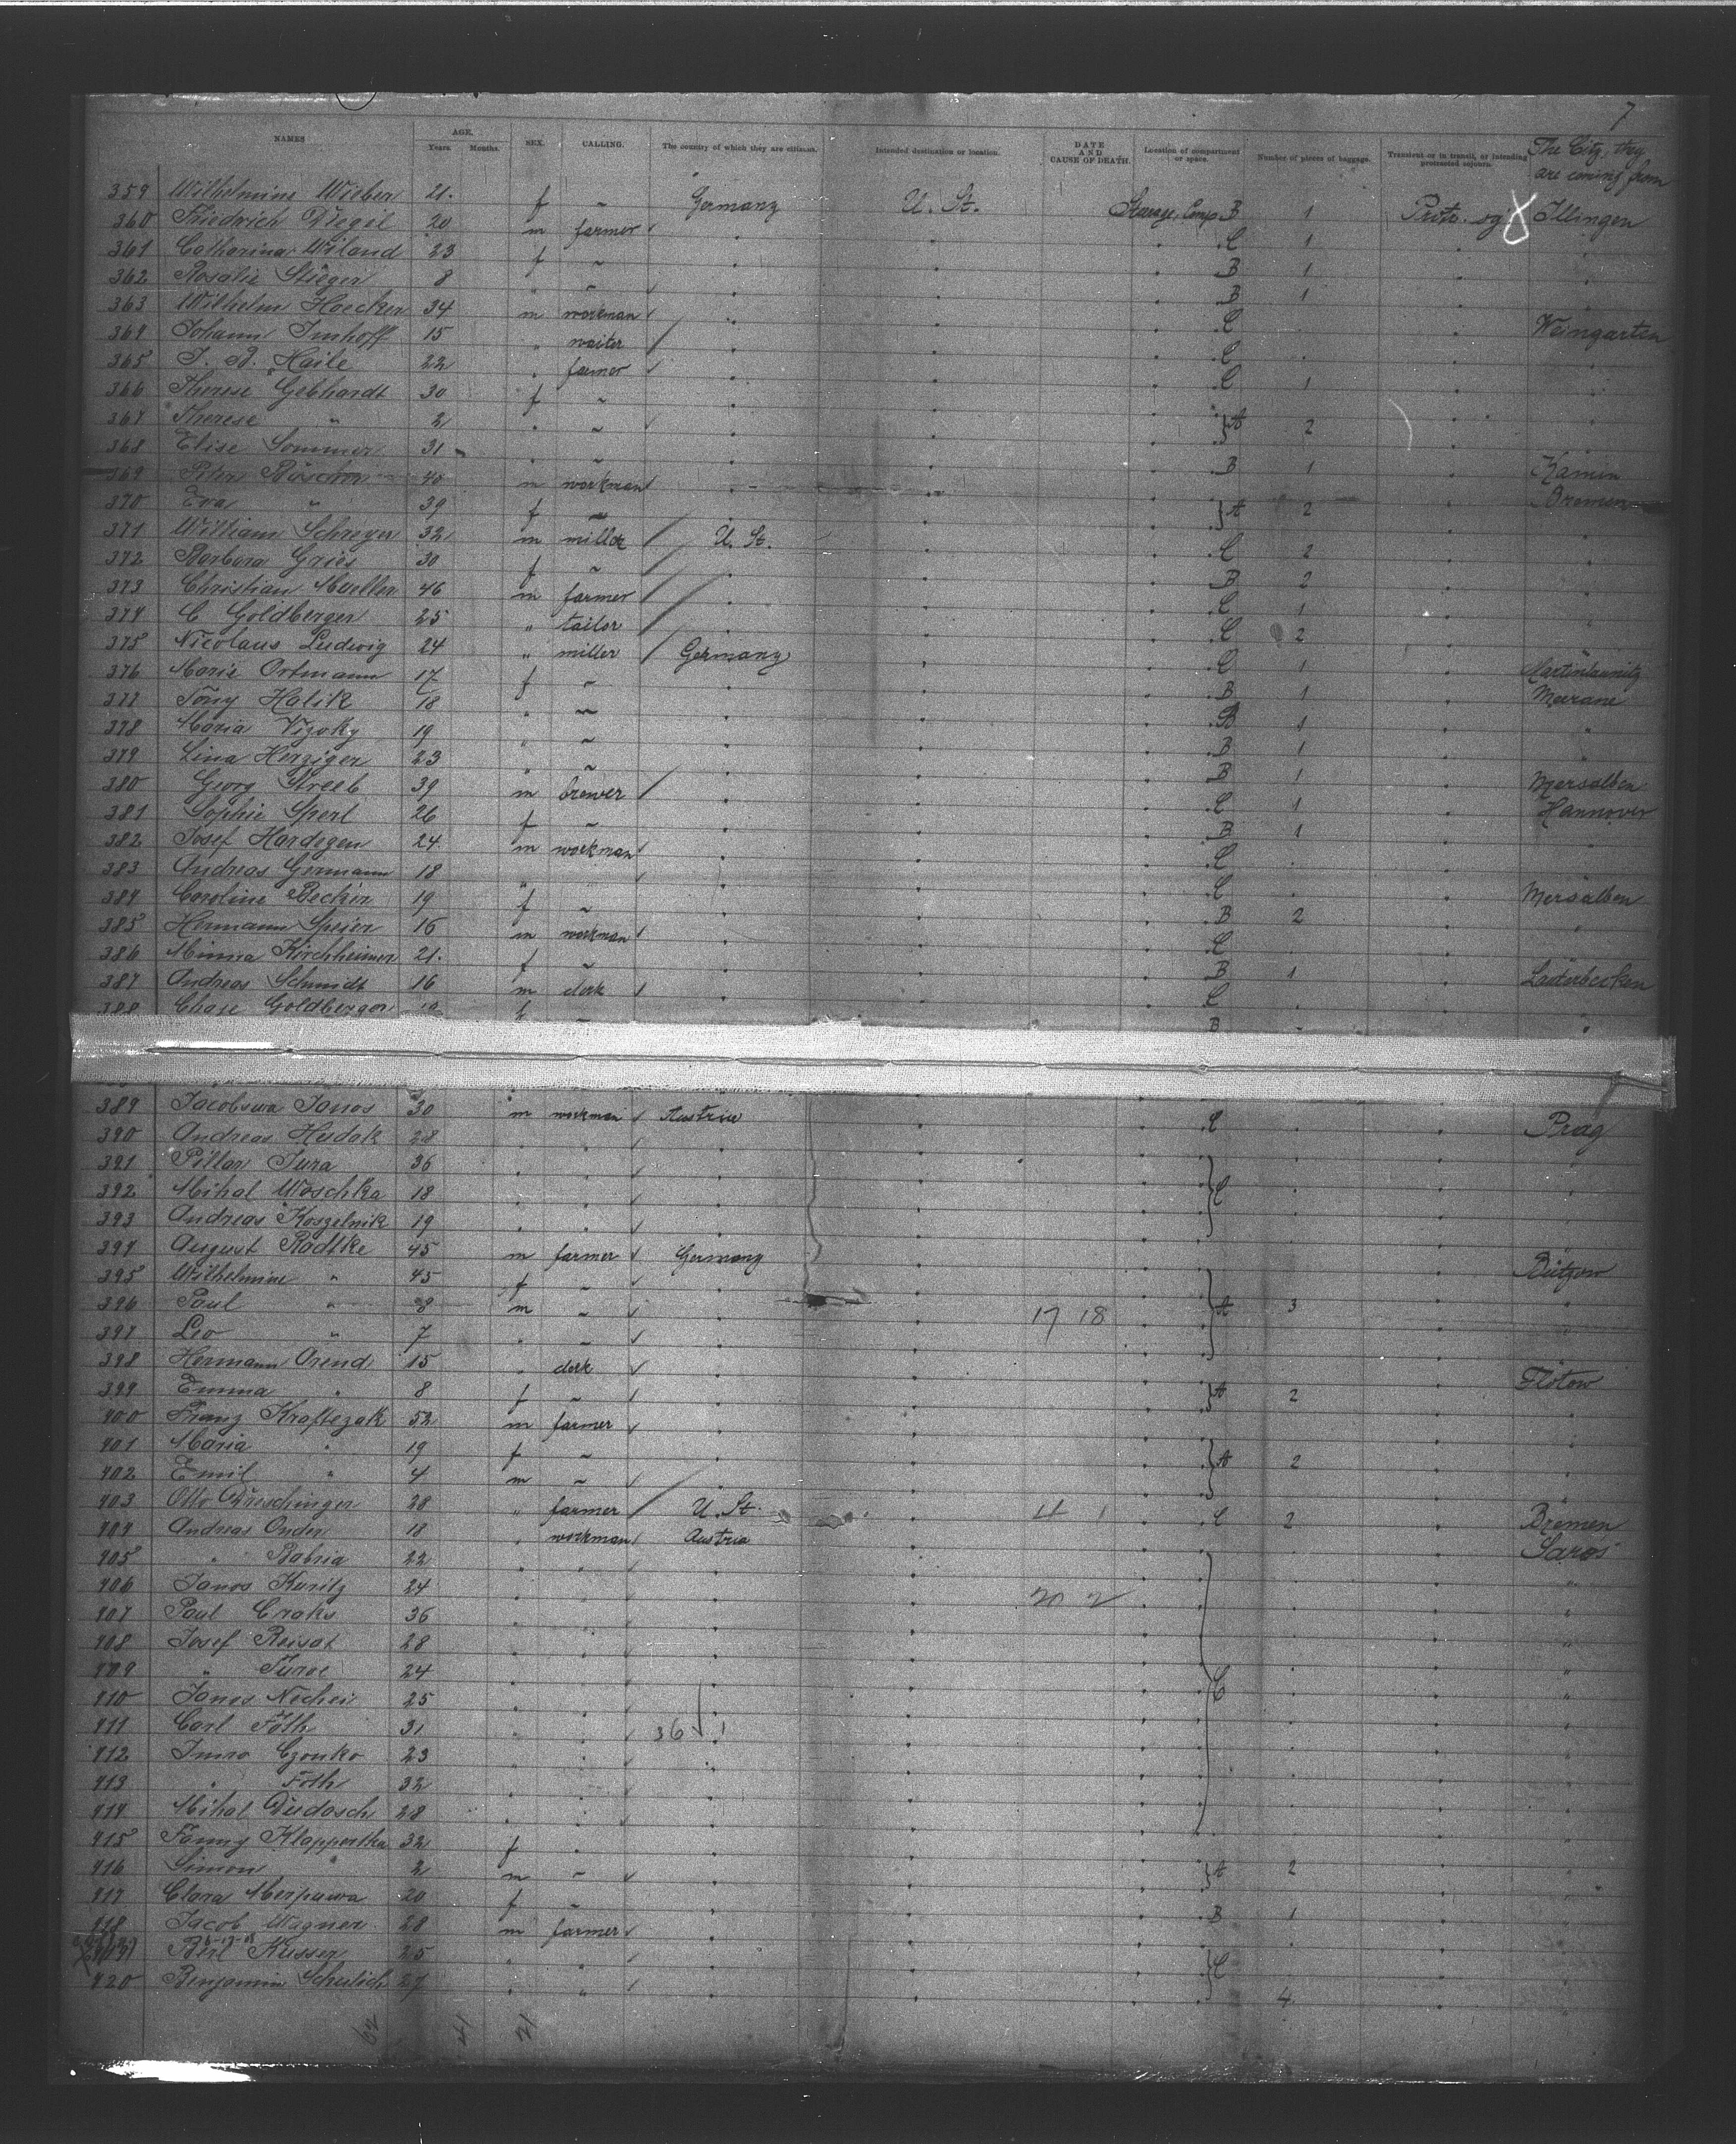 7
NAMES AGE. Years. Months. SEX. CALLING. The country of which they are citizens. Intended destination or location. DATE AND CAUSE OF DEATH. Location of compartment or space. Number of pieces of baggage. Transient or in transit, or intending protracted sojourn. The City, they are coming from
359 Wilhelmine Wieber 21. f ~ Germany U. St. Steerage Comp. B 1 Illingen
360 Friedrich Diegel 20 m farmer C 1 "
361 Catharina Wiland 23 f ~ B 1 "
362 Rosalie Stieger 8 " ~ B 1 "
363 Wilhelm Hoecker 34 m workman C Weingarten
364 Johann Imhoff 15 " waiter C "
365 J. Ad. Haile 22 " farmer C 1 "
366 Therese Gebhardt 30 f ~ "
367 Therese " 2 " ~ } A 2 "
368 Elise Sommer 31 " ~ B 1 Kamen
369 Peter Büschon 40 m workman Bremen
370 Eva " 39 f ~ } A 2 "
371 William Schreyer 32 m miller U. St. C 2 "
372 Barbara Gries 30 f ~ B 2 "
373 Christian Mueller 46 m farmer C 1 "
374 C Goldberger 25 " tailor C 2 "
375 Nicolaus Ludwig 24 " miller Germany C 1
376 Marie Ortmann 17 f ~ B 1 Meerane
377 Tony Halik 18 " ~ B 1 "
378 Maria Vizoky 19 " ~ B 1 "
379 Lina Herziger 23 " ~ B 1 Mersalben
380 Georg Streeb 39 m brewer C 1 Hannover
381 Sophie Sperl 26 f ~ B 1 "
382 Josef Hardegen 24 m workman C "
383 Andreas Germann 18 " " C Mersalben
384 Caroline Becker 19 f ~ B 2 "
385 Hermann Speier 16 m workman C "
386 Minna Kirchheimer 21. f ~ B 1 Lauterecken
387 Andreas Schmidt 16 m clerk C
388 Chaje Goldberger f ~ B "
389 Jacobswa Janos 30 m workman Austria C Prag
390 Andreas Hudak 28 "
391 Pillar Jura 36 "
392 Mihal Woschka 18 } C "
393 Andreas Koszelnik 19 "
394 August Radtke 45 m farmer Germany Bützow
395 Wilhelmine " 45 f ~ "
396 Paul " 8 m ~ 17 18 } A 3 "
397 Leo " 7 " ~ "
398 Hermann Arend 15 " clerk Flötow
399 Emma " 8 f ~ } A 2 "
400 Franz Kraftezak 52 m farmer "
401 Maria " 19 f ~ } A 2 "
402 Emil " 4 m ~ "
403 Otto Dreschinger 28 " farmer U. St. C 2 Bremen
404 Andreas Onder 18 " workman Austria Saros
405 " Babria 22 " " "
406 Janos Kuritz 24 20 2 "
407 Paul Craks 36 "
408 Josef Reisat 28 "
409 " Turoe 24 "
410 Janos Nechei 25 } C "
411 Carl Foth 31 36 1 "
412 Imro Czonko 23 "
413 " Foth 32 "
414 Mihal Dudasch 28 "
415 Fanny Klappertha 32 f "
416 Simon " 2 m ~ } A 2 "
417 Clara 20 f ~ B 1 "
418 Jacob Wagner 28 m farmer "
Berl Kusser 25 " " } C "
420 Benjamin Schulich 27 " " 4 "
62 41 21